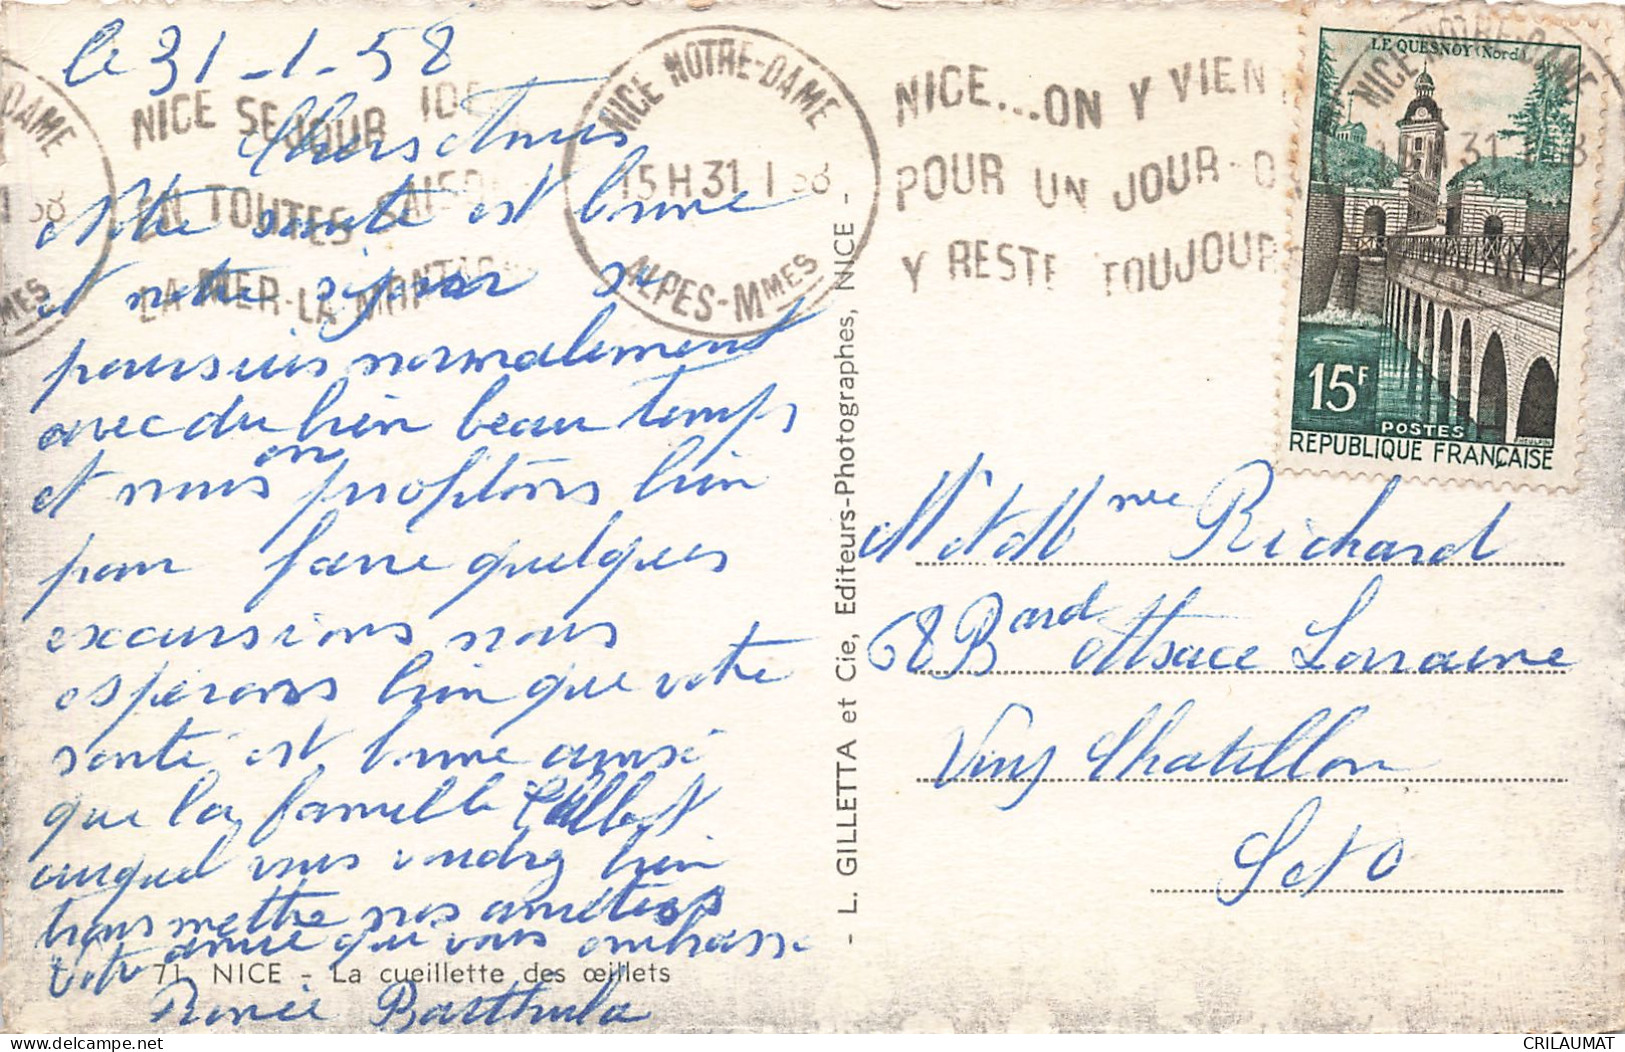 le 31-1-58
Chers Amis
Notre santé est bonne
et notre séjour se
poursuis normalement
avec du bien beau temps
et nous on profitons bien
pour faire quelques
excursions nous
esperons bien que votre
santé est bonne ainsi
que la famille
auquel vous voudrez bien
transmettre nos amitiés
votre amie qui vous embrasse
Renée
71. NICE - La cueillette des œillets
- L. GILLETTA et Cie, Editeurs-Photographes, NICE -
NICE SEJOUR IDE
EN TOUTES SAISO
LA MER-LA MONTAG
NICE NOTRE-DAME
15H31 1 58
ALPES-MMES
NICE...ON Y VIEN
POUR UN JOUR-O
Y RESTE TOUJOUR
LE QUESNOY (Nord)
15F
POSTES
REPUBLIQUE FRANÇAISE
M et Mme Richard
68 Bard Alsace Lorraine
Viry Chatillon
S et O
CRILAUMAT